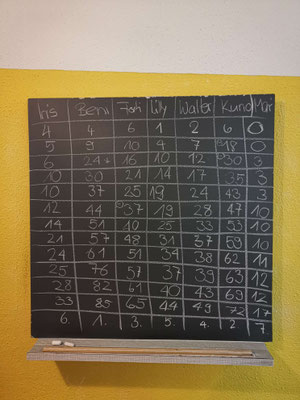 Iris Beni Fadi Lilly Walter Kuno Mär
4 4 6 1 2 6 0
5 9 10 4 7 18 0
6 24 16 10 12 30 3
10 30 21 14 17 35 3
10 37 25 19 24 43 3
12 44 37 19 28 47 10
14 51 40 25 33 53 10
21 57 48 31 37 59 10
24 61 51 34 38 62 11
25 76 57 37 39 63 12
28 82 61 40 43 69 12
33 85 65 44 49 72 17
6. 1. 3. 5. 4. 2. 7